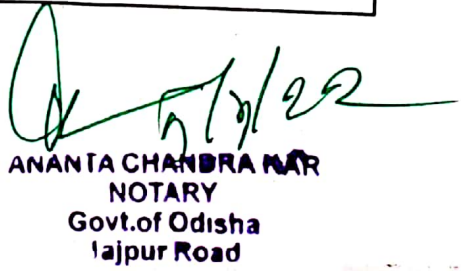 5/7/22
ANANTA CHANDRA KAR
NOTARY
Govt.of Odisha
Jajpur Road